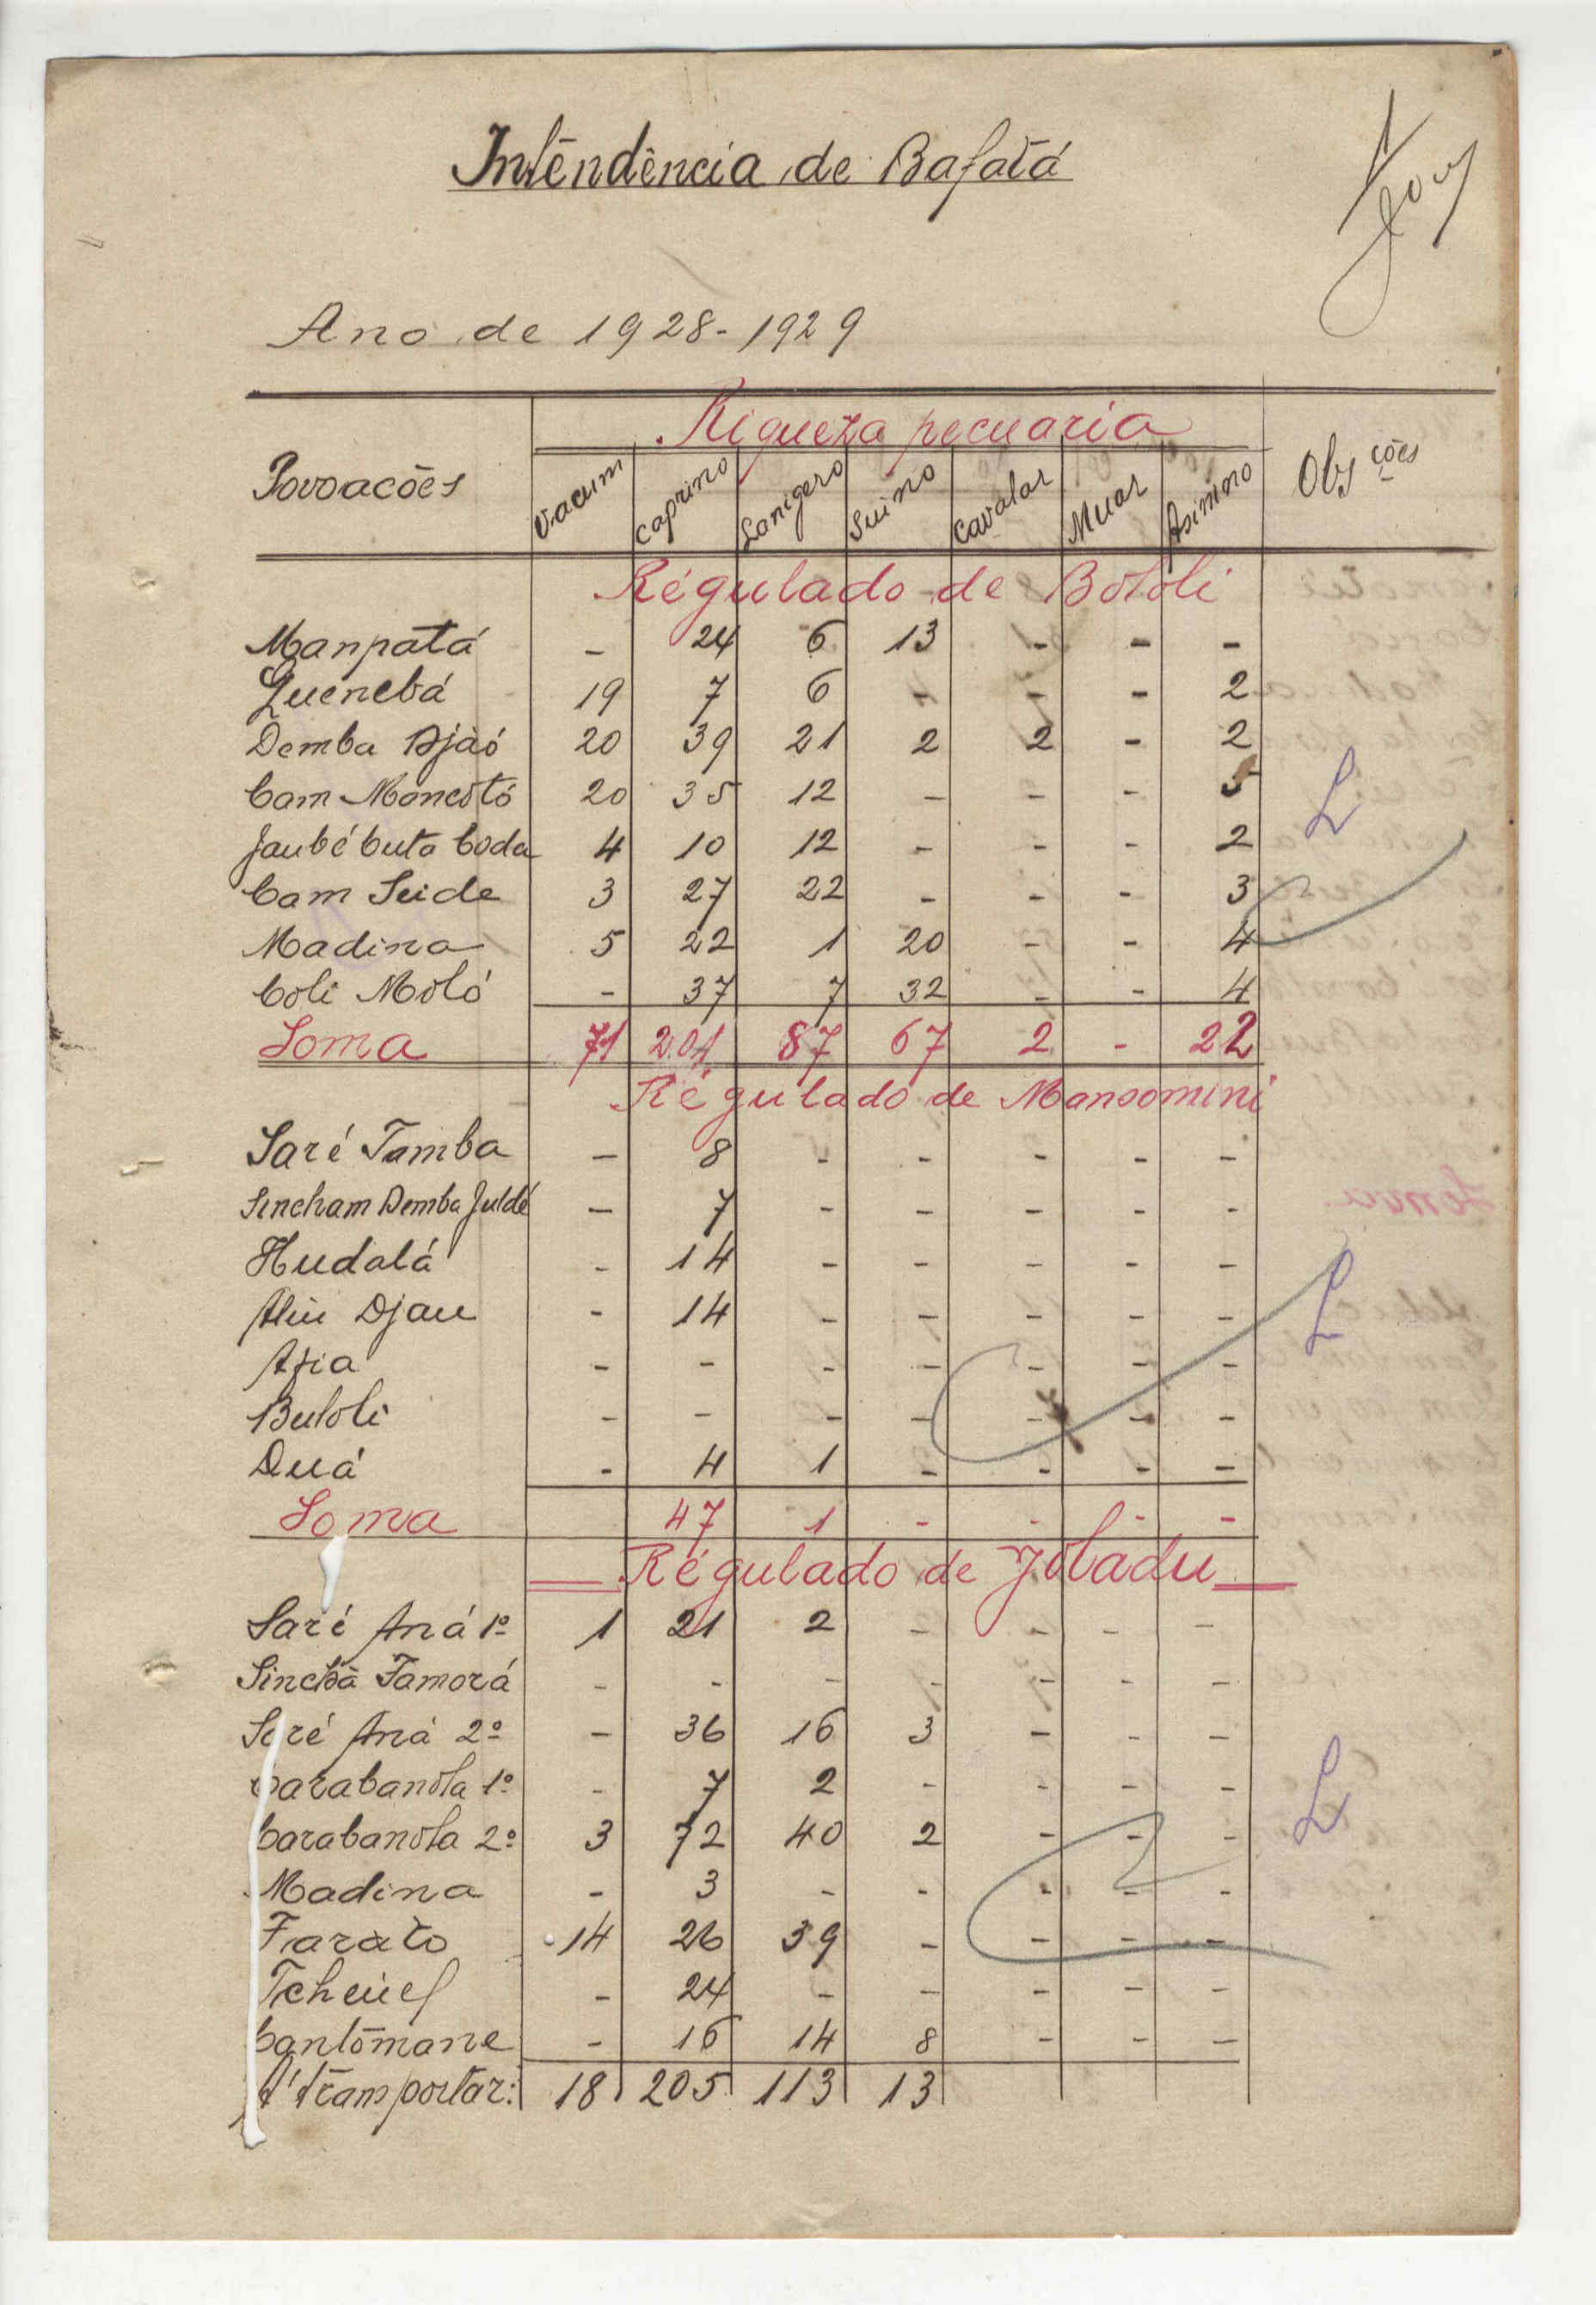 Intendência de Bafatá
Ano de 1928-1929
Povoacões Riqueza pecuaria Obsções
Vacum Caprino Lanigero Suino Cavalar Muar Asinino
Régulado de Bololi
Manpatá - 24 6 13 - - -
Quenebá 19 7 6 - - - 2
Demba Djaó 20 39 21 2 2 - 2
Cam Mancótó 20 35 12 - - - 5
Jaubé Cuta Coda 4 10 12 - - - 2
Cam Seide 3 27 22 - - - 3
Madina 5 22 1 20 - - 4
Coli Moló - 37 7 32 - - 4
Soma 71 201 87 67 2 - 22
L
Régulado de Mansomini
Saré Tamba - 8 - - - - -
Sincham Demba Juldé - 7 - - - - -
Hudalá - 14 - - - - -
Aliu Djau - 14 - - - - -
Afia - - - - - - -
Buloli - - - - - - -
Duá - 4 1 - - - -
Soma 47 1 - - - -
L
Régulado de Joladu
Saré Aná 1º 1 21 2 - - - -
Sinchã Tamorá - - - - - - -
Saré Aná 2º - 36 16 3 - - -
Carabanola 1º - 7 2 - - - -
Carabanola 2º 3 72 40 2 - - -
Madina - 3 - - - - -
Farato 14 26 39 - - - -
Tcheuel - 24 - - - - -
Cantomane - 16 14 8 - - -
A transportar: 18 205 113 13
L